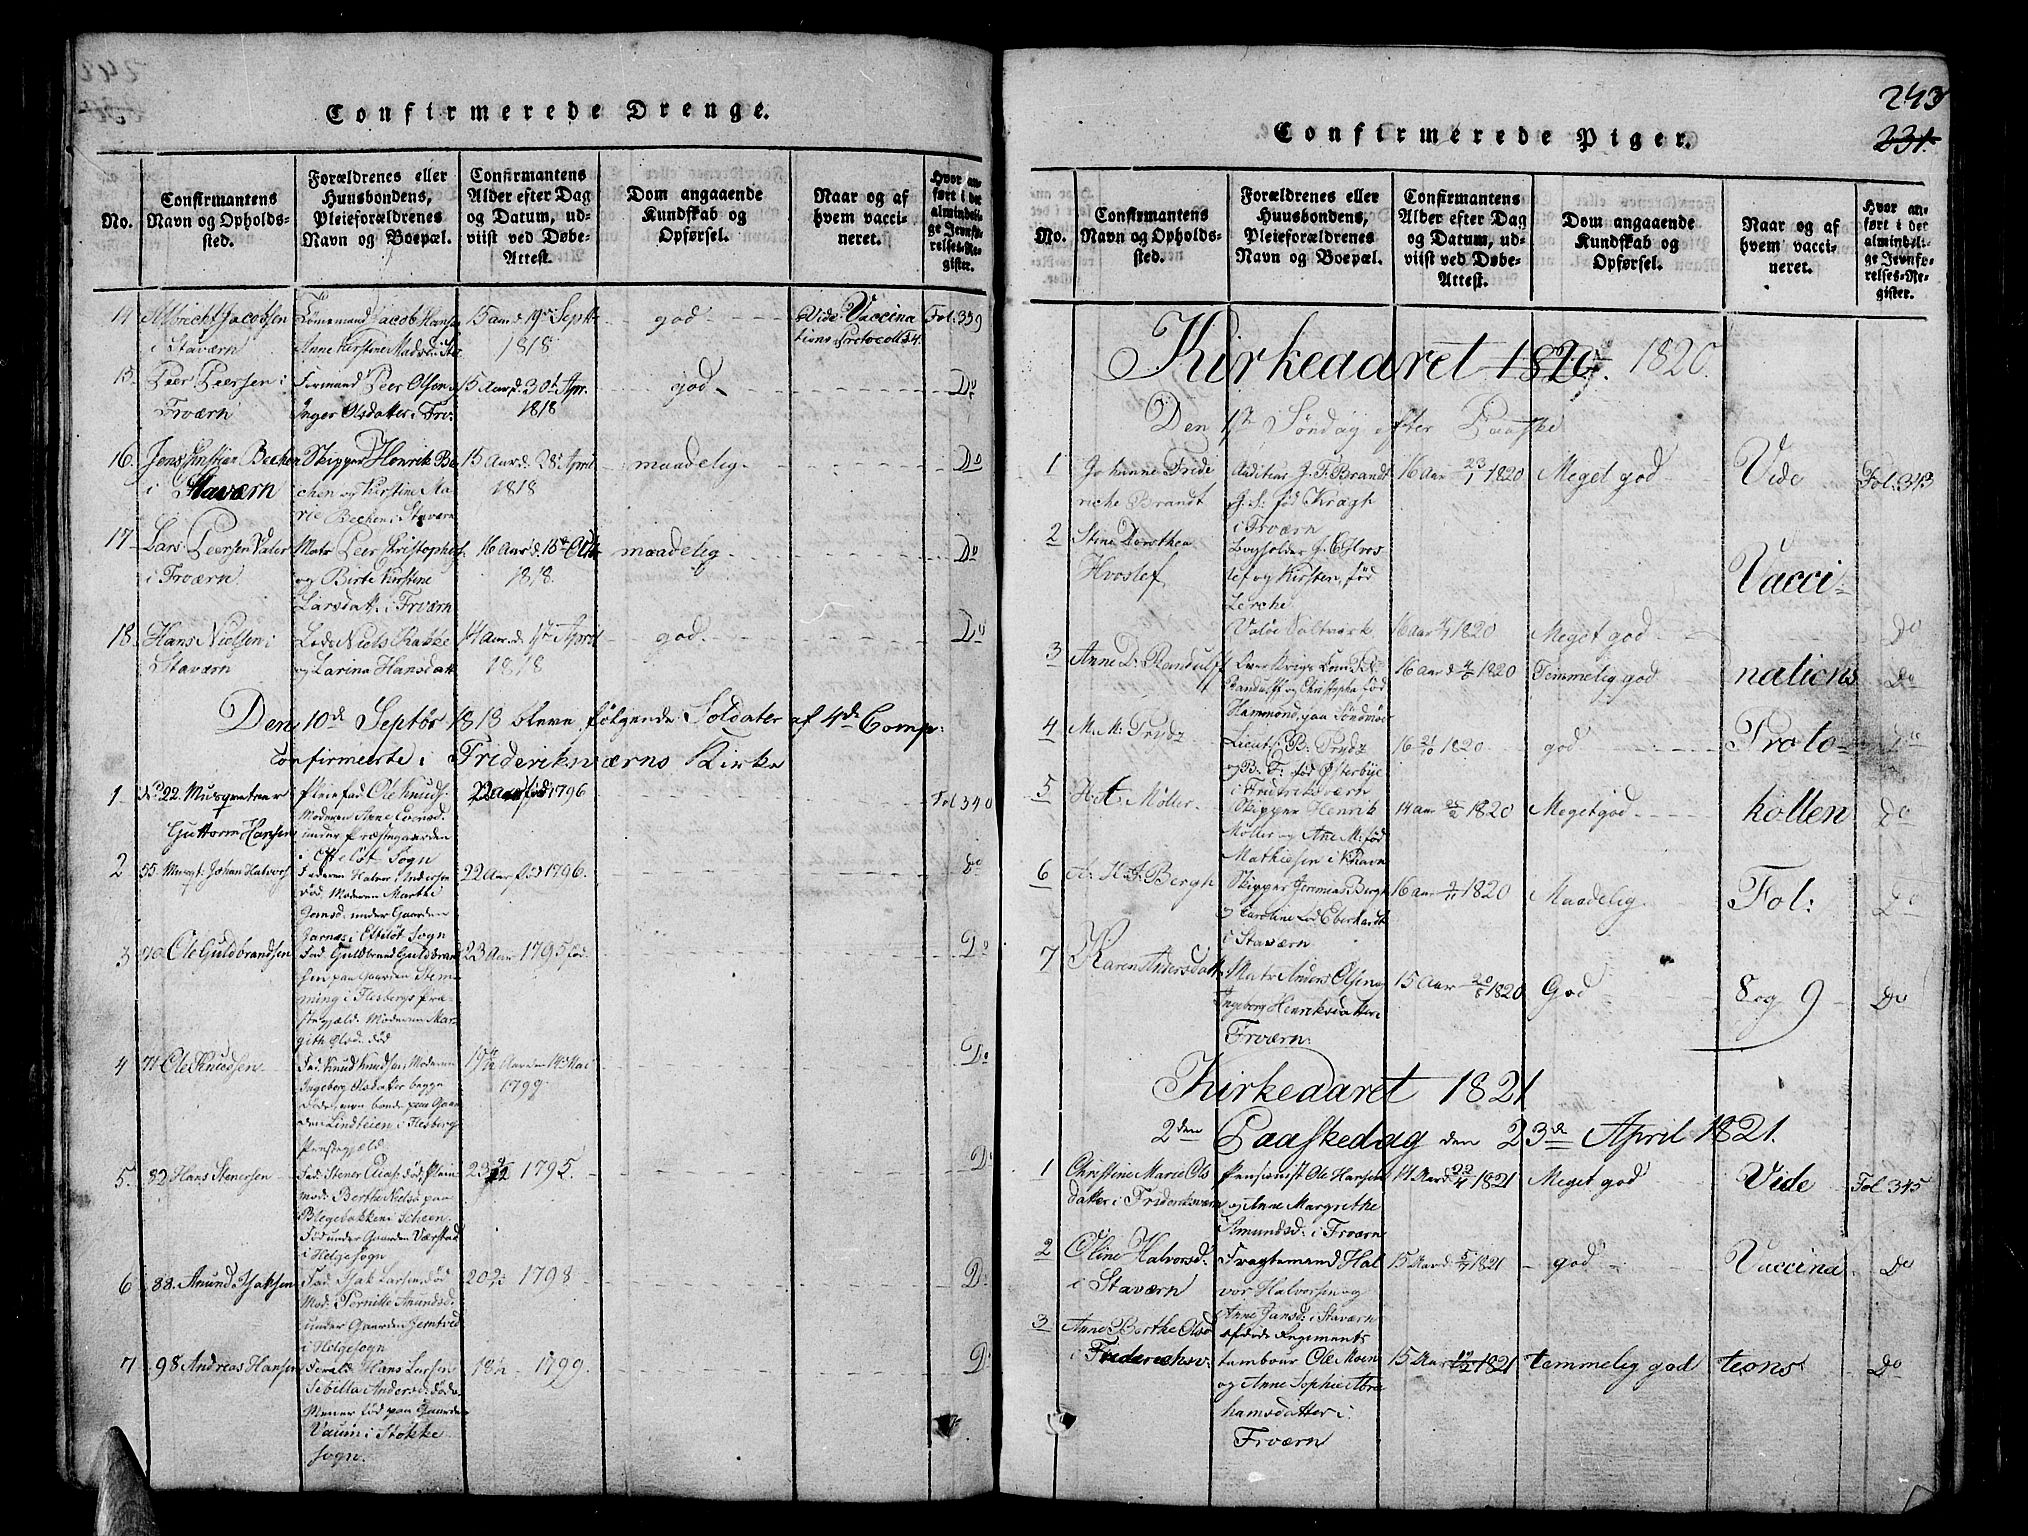 Confirmerede Drenge.
No.
Confirmantens Navn og Opholds-sted.
Forældrenes eller Huusbondens, Pleieforældrenes Navn og Boepæl.
Confirmantens Alder efter Dag og Datum, ud-viist ved Døbe-Attest.
Dom angaaende Kundskab og Opførsel.
Naar og af hvem vacci-neret.
Hvor an-ført i det almindeli-ge Jevnfø-relses-Re-gister.
14 Albrecht Jacobsen i Staværn
Jacob Hansen
Anne Kirstine
15 Aar d. 19de Septr
1818
god
Vide Vaccina
tions Protocoll
Fol: 339
15. Peer Peersen i Frværn
Peer Olsen
Inger Olsdatter i Frv:
15 Aar d. 30t Apr.
1818
god
Do
16. Jens Christian Bechen
i Staværn
Skipper Henrik Be-
chen og Kirstine Ma-
rie Bechen i Staværn
15 Aar d. 28de April
1818
maadelig
Do
17 Lars Peersen
i Frværn
Matr. Peer Christophers.
og Birte Kirstine
Larsdatt. i Frværn
16 Aar d. 15de
1818.
maadelig
Do
18. Hans Nielsen i
Staværn
Niels Rakke
og Larina Hansdatt
14 Aar d. 17de April
1818
god
Do
Den 10de Septbr 1818 bleve følgende Soldater af 4de Comp:
Confirmerte i Frideriksværns Kirke
1 No 22. Musqueteer
Guttorm Hansen
Pleiefad. Ole Knuds.
Moderen Anne
under Præstegaarden
i Efteløt Sogn
22 Aar født 1796
Fol 340
2 55. Musqt: Johan Halvors
Faderen Halvor Andersen
død. Moderen Marthe
Jonsd: under Gaarden
Jarnæs i Efteløt Sogn
22 Aar født 1796.
Do
3 70 Ole Guldbrandsen
Fad. Guldbrand Guldbrand
sen paa Gaarden Stem-
ming i Flesbergs Præ-
stegjæld: Moderen Mar-
gith Olsd. død
23 Aar 1795 fød
Do
4 71 Ole Knudsen
Fad. Knud Knudsen Moderen
Ingeborg Olsdatter begge
døde, bonde paa Gaar
den Lindteien i Flesberg
Præstegjæld
Aar den 14 Mai
1799
Do
5. 82 Hans Stenersen
Fad. Stener død, Pleie
mod: Berthe Niels. paa
Blegebakken i Scheen.
Fød under Gaarden
i Helgesogn
23 1/2 1795.
Do
6 88. Amund Isaksen
Fad. Isak Larsen, død
Mod: Pernille Amundsd.
under Gaarden
i Helgesogn
20 1/2 1798
Do
7 98 Andreas Hansen
Foræld: Hans Larsen
Sebilla Andersd. døde
Mener fød paa Gaarden
Vaum i Stokke
Sogn.
18 1/2 1799.
Do
243
231.
Confirmerede Piger.
No.
Confirmantens Navn og Opholds-sted.
Forældrenes eller Huusbondens, Pleieforældrenes Navn og Boepæl.
Confirmantens Alder efter Dag og Datum, ud-viist ved Døbe-Attest.
Dom angaaende Kundskab og Opførsel.
Naar og af hvem vacci-neret.
Hvor an-ført i det almindeli-ge Jevnfø-relses-Re-gister.
Kirkeaaret 1820.
Den 1ste Søndag efter Paaske
1 Johanne Fride
riche Brandt
Auditeur J. F. Brandt
fød Kragh
i Frværn
16 Aar 23/1 1820
Meget god
Vide
Fol: 343
2 Stine Dorothea
Hvoslef
Bogholder Hvos
lef og Kirsten, fød
Lerche
Valøe Saltværk
16 Aar 1820
Meget god
Vacci-
Do
3 Anne D: Randulff
Randulff og Christopha fød
Hammond, paa Søndmør
16 Aar d 1820
Temmelig god
nations
Do
4 M. M: Prydz
Lieut: C: B: Prydz
og B. F: fød Østerbye
i Fridriksværn
16 21/10 1820
god
Proto
Do
5 Møller
Skipper Henrik
Møller og Ane M: fød
Mathiesen i Khavn
14 Aar 1820
Meget god
kollen
Do
6 Bergh
Skipper Jeremias Bergh
og Caroline fød Eberhardt
i Staværn
16 Aar 1820
Maadelig
Fol:
Do
7 Karen Andersdatt.
Matr. Anders Olsen og
Ingeborg Henriksdatter i
Frværn:
15 Aar 20/8 1820
God
8 og 9
Do
Kirkeaaret 1821
2den Paaskedag den 23de April 1821.
1 Christine Marie Ols
datter i Frideriksværn
Pensionist Ole Hansen
og Anne Margrethe
Amundsd: i Frværn
14 Aar d 22/4 1821
Meget god
Vide
Fol 345
2 Oline Halvorsd.
i Staværn
Fragtemand Hal
vor Halvorsen og
Anne Jansd: i Staværn
15 Aar d. 5/7 1821
god
Vaccina
Do
3 Anne Berthe Olsd
i Frideriksv:
afdøde Regiments
tambour Ole Moen
og Anne Sophie Abra
hamsdatter i
Frværn
15 Aar 1821
temmelig god
tions
Do